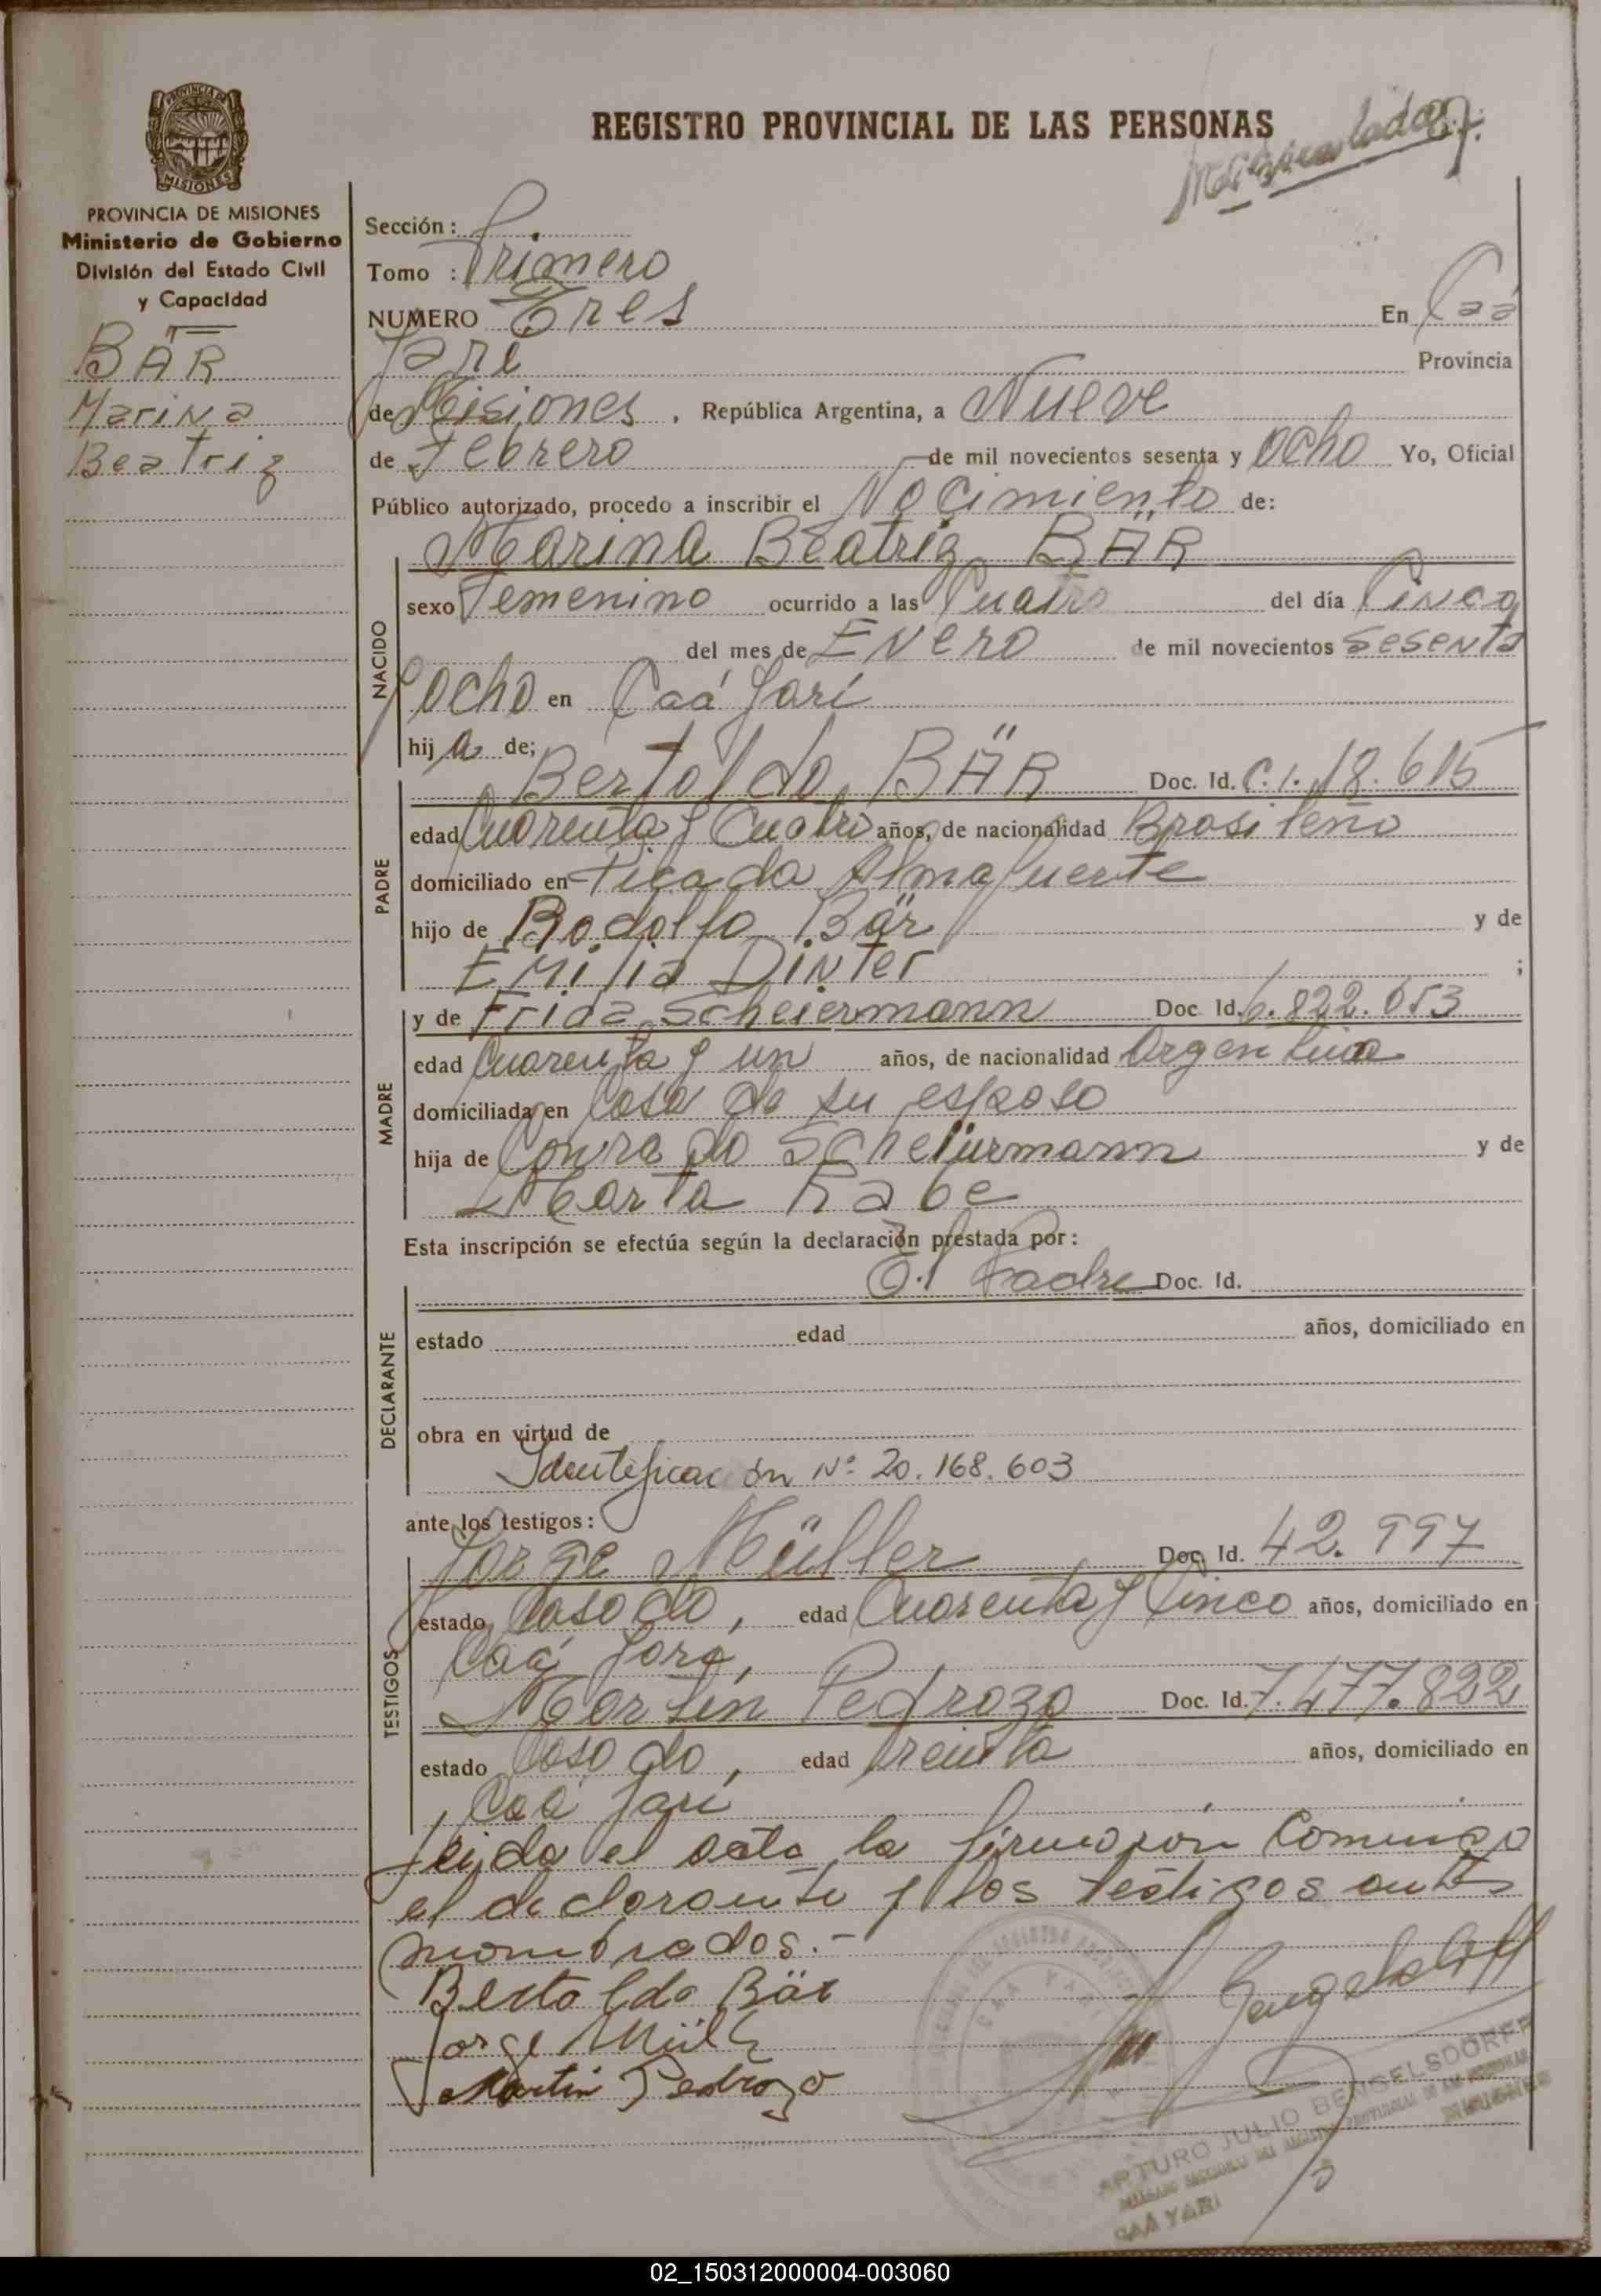 REGISTRO PROVINCIAL DE LAS PERSONAS
PROVINCIA DE
MISIONES
PROVINCIA DE MISIONES
Ministerio de Gobierno
División del Estado Civil
y Capacidad
BÄR
Marina
Beatriz
Sección :
Tomo : Primero
NUMERO Tres En Caá
Yarí Provincia
de Misiones , República Argentina, a Nueve
de Febrero de mil novecientos sesenta y ocho Yo, Oficial
Público autorizado, procedo a inscribir el Nacimiento de:
Marina Beatriz BÄR
NACIDO
sexo Femenino ocurrido a las Cuatro del día Cinco
del mes de Enero de mil novecientos Sesenta
y ocho en Caá Yarí
hij a de;
PADRE
Bertoldo BÄR Doc. Id. C.I. 18.615
edad Cuarenta y Cuatro años, de nacionalidad Brasileño
domiciliado en Picada Almafuerte
hijo de Rodolfo Bär y de
Emilia Dinter ;
MADRE
y de Frida Scheiermann Doc. Id. 6.822.053
edad Cuarenta y un años, de nacionalidad Argentina
domiciliada en Casa de su esposo
hija de Conrado y de
Marta Rabe
Esta inscripción se efectúa según la declaración prestada por:
DECLARANTE
El Padre Doc. Id.
estado edad años, domiciliado en
obra en virtud de
Identificación Nº 20.168.603
ante los testigos:
TESTIGOS
Jorge Müller Doc. Id. 42.997
estado Casado, edad Cuarenta y Cinco años, domiciliado en
Caá Yarí,
Martín Pedrozo Doc. Id. 7.477.822
estado Casado, edad Treinta años, domiciliado en
Caá Yarí
Leída el acta la firmaron Conmigo
el declarante y los testigos antes
nombrados.-
Bertoldo Bär
Jorge Müller
Martin Pedrozo
CAA YARI
ARTURO JULIO BENGELSDORFF
MISIONES
CAA YARI
02_150312000004-003060